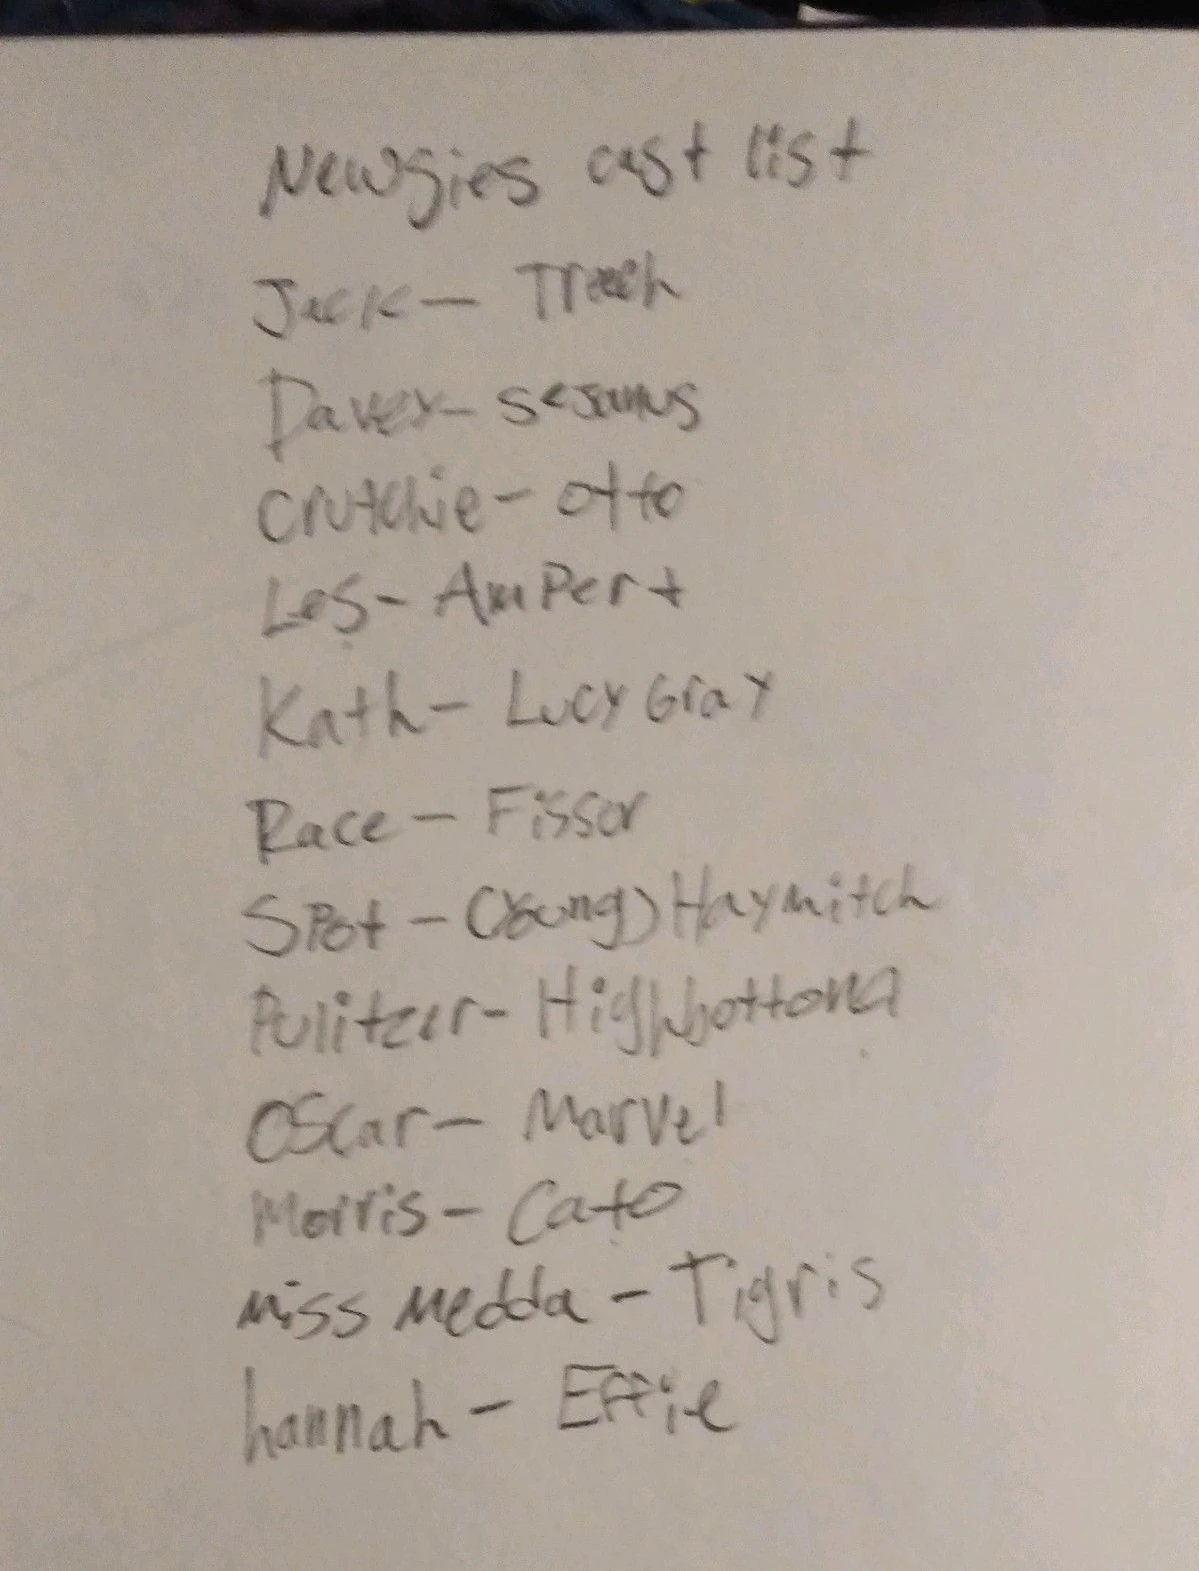 Newsies cast list
Jack - Treech
Davey - sejanus
Crutchie - otto
Les - AmPert
Kath - Lucy Gray
Race - Fisser
SPot - (Young) Haymitch
Pulitzer - Highbottom
Oscar - Marvel
Morris - Cato
miss Medda - Tigris
hannah - Effie